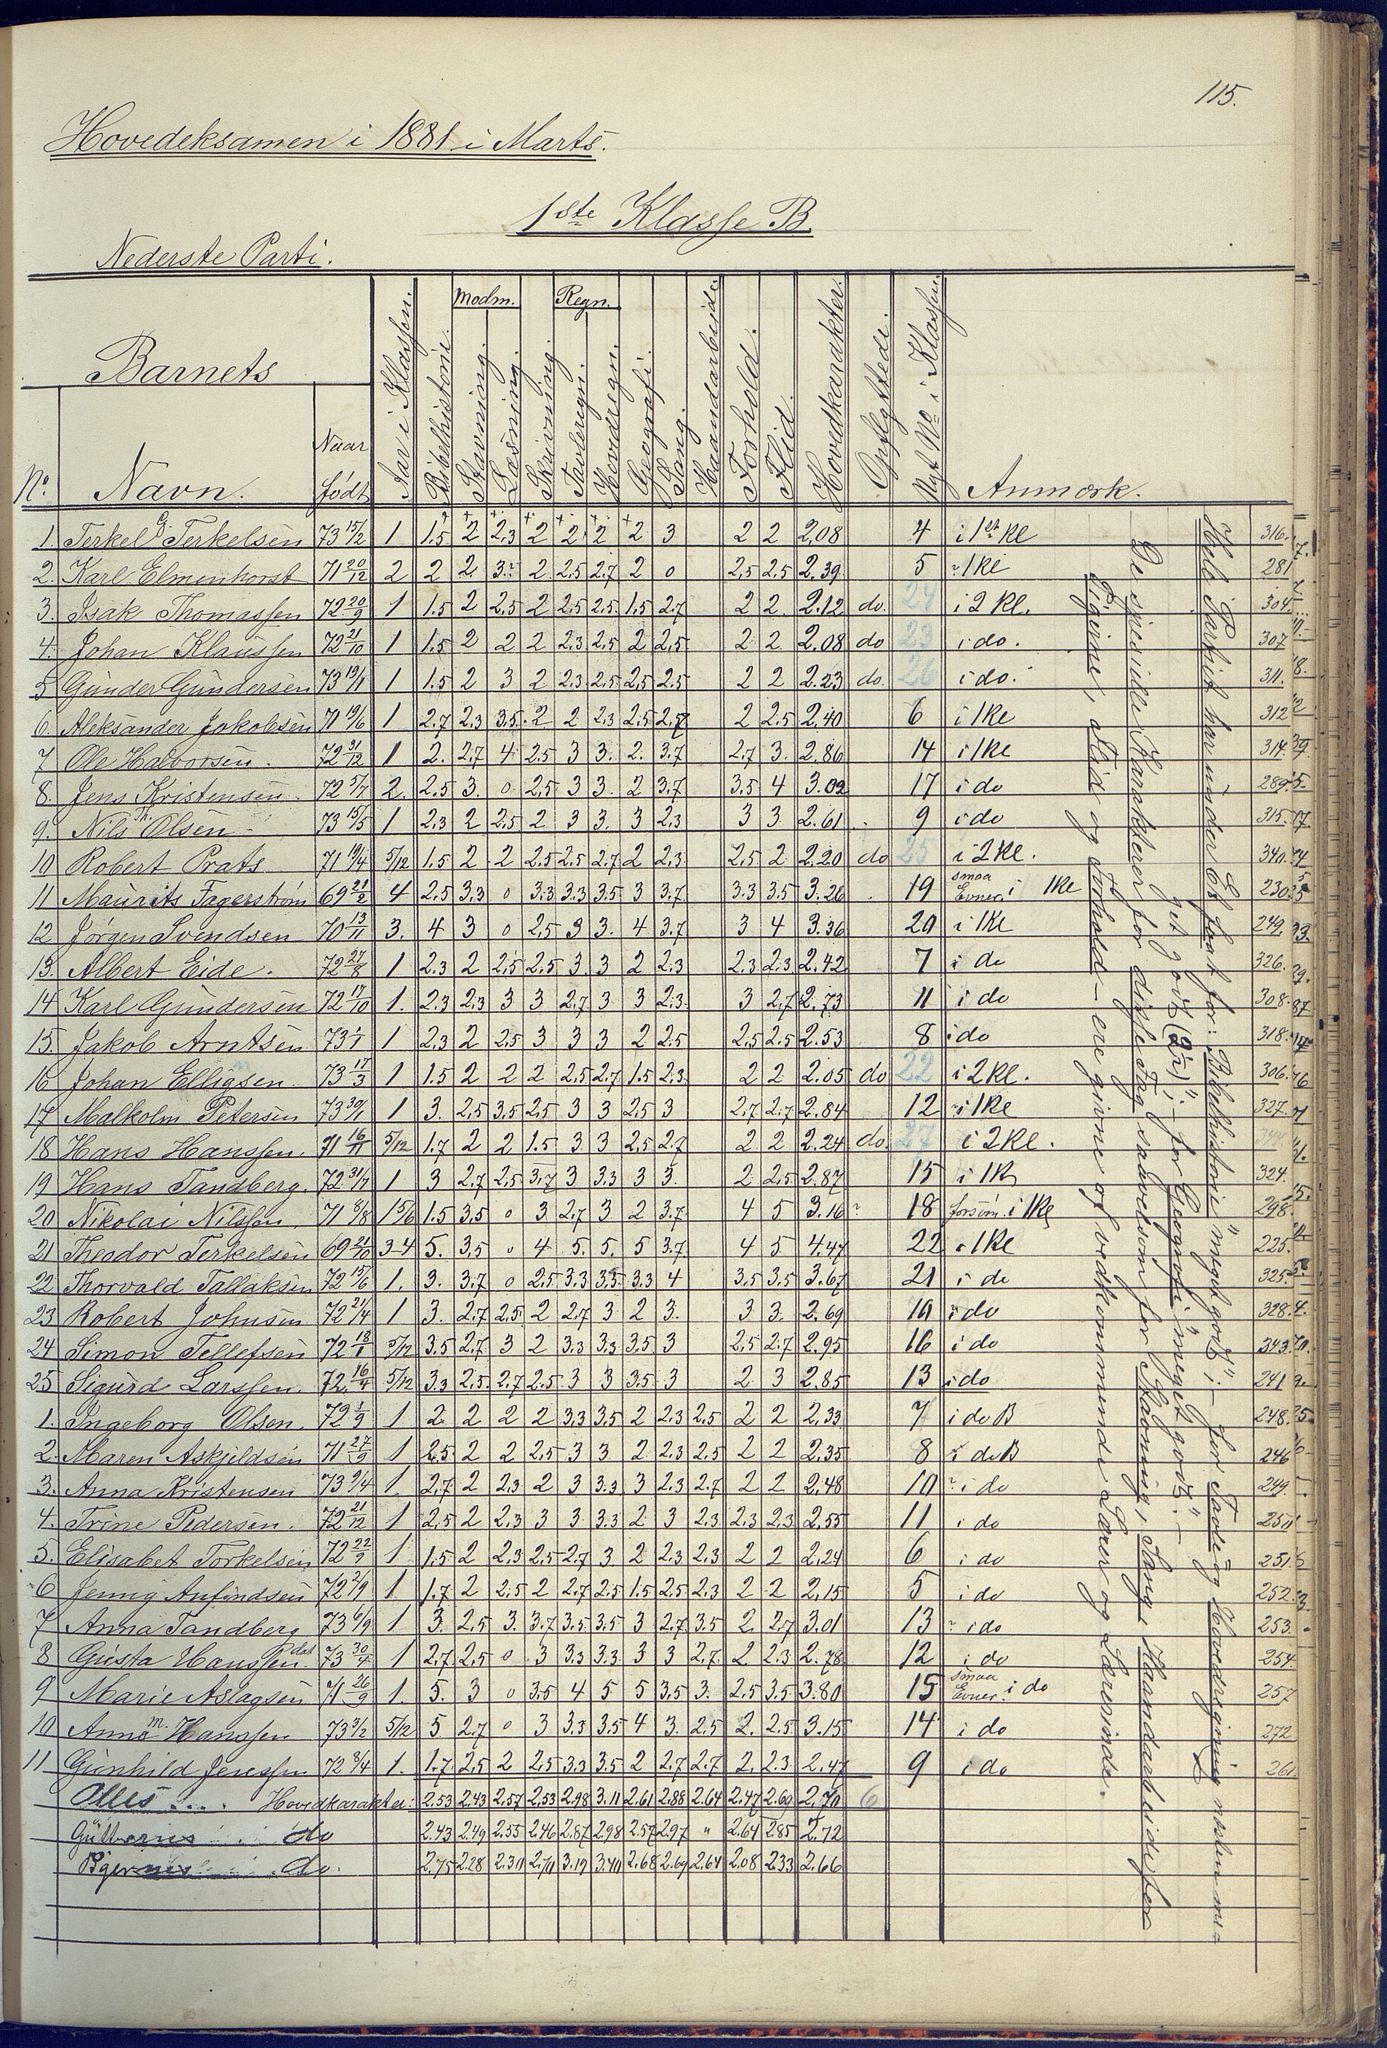 115.
Hovedeksamen i 1881 i Marts.
1ste Klasse B.
Nederste Parti.
Barnets
No. Navn. Naar født Aar i Klassen. Bibelhistorie. Modm. Stavning. Læsning. Skrivning. Regn. Tavleregn. Hovedregn. Geografi. Sang. Haandarbeide. Forhold. Flid. Hovedkarakter. Opflyttede. Nyt No i Klassen. Anmærk.
1. Terkel G. Terkelsen 73 15/2 1 1.5 2 2.3 2 2 2 2 3 2 2 2.08 4 i 1ste Kl 316.
2. Karl Elmenhorst 71 20/12 2 2 2 3 2 2.5 2.7 2 0 2.5 2.5 2.39 5 1 Kl 281
3. Isak Thomassen 72 20/9 1 1.5 2 2.5 2 2.5 2.5 1.5 2.7 2 2 2.12 do. 24 i 2 Kl. 304
4. Johan Klaussen 72 21/10 1 1.5 2 2 2 2.3 2.5 2 2.5 2 2 2.08 do 23 i do. 307
5 Gunder Gundersen 73 19/1 1 1.5 2 3 2 2.3 2.5 2.5 2.5 2 2 2.23 do. 26 i do. 311.
6. Aleksander Jakobsen 71 19/6 1 2.7 2.3 3.5 2 2 2.3 2.5 2.7 2 2.5 2.40 6 i 1 Kl 312
7 Ole Halvorsen. 72 31/12 1 2. 2.7 4 2.5 3 3. 2 3.7 2.7 3. 2.86 14 i 1 Kl 314.
8. Jens Kristensen. 72 5/7 2. 2.5 3. 0 2.5 3 3. 2 3.7 3.5 4 3.02 17 i do 289
9. Nils Th. Olsen 73 15/5 1 2.3 2 2.5 2 3 3. 3 2.3 3 3 2.61 9 i do 315.
10 Robert Prats 71 19/4 5/12 1.5 2 2 2.5 2.5 2.7 2 2.3 2.5 2 2.20 do 25 i 2 Kl. 340.
11 Maurits Fagerstrøm 69 21/2 4 2.5 3.3 0 3.3 3.3 3.5 3 3.7 3.3 3.5 3.26 19 smaa Evner. i 1 Kl 230
12 Jørgen Svendsen 70 13/11 3. 4 3 0 2.5 3 3. 4 3.7 3 4 3.36 20 i 1 Kl 249.
13. Albert Eide. 72 27/8 1 2.3 2 2.5 2.5 3 3 2 2.3 2.3 2.3 2.42 7 i do 326.
14 Karl Gundersen 72 17/10 1. 2.3 2.3 3 3 2.7 3 3 2.3 3 2.7 2.73 11 i do 308.
15. Jakob Arntsen 73 1/1 1 2.3 2 2.5 3 3 3 2 2.5 2.5 2.5 2.53 8 i do 318.
16 Johan Elligsen 73 17/3 1 1.5 2 2 2 2.5 2.7 1.5 2.3 2 2 2.05 do 22 i 2 Kl. 306.
17 Malkolm Petersen 73 30/1 1 3. 2.5 3.5 2.5 3 3 2.5 3 2.7 2.7 2.84 12 i 1 Kl 327.
18 Hans Hanssen. 71 16/11 5/12 1.7 2 2 1.5 3 3 2.5 2.7 2 2 2.24 do. 27 i 2 Kl. 344
19 Hans Tandberg. 72 31/7 1 3 2.7 2.5 3.7 3 3.3 3 5. 2 2.5 2.87 15 i 1 Kl 324.
20 Nikolai Nilssen 71 8/8 1 5/6 1.5 3.5 0 3 2.7 3 2 3.7 4 5 3.16 18 forsøm. i 1 Kl 298.
21 Theodor Terkelsen 69 21/10 3-4 5. 3.5 0 4 5. 5. 5 3.7 4 5 4.47 22 i 1 Kl 225.
22 Thorvald Tallaksen 72 15/6 1. 3. 3.7 0 2.5 3.3 3.5 3.3 4 3.5 3.5 3.67 21 i do 325.
23 Robert Johnsen 72 21/4 1 3. 2.7 2.5 2 2.7 3 2 3. 3 3. 2.69 10 i do 328.
24 Simon Tellefsen 72 18/1 5/12 3.5 2.7 3 2 3.3 3.3 3.5 3 2.5 2.7 2.95 16 i do 343.
25 Sigurd Larssen 72 16/4 5/12 3.3 2.5 2.7 2.5 3 3 3.5 3 2 3 2.85 13 i do 241
1. Ingeborg Olsen 72 1/9 1 2. 2 2 2 3.3 3.5 2 2.3 2.5 2 2 2.33 7 i do B 248.
2. Maren Askjeldsen 71 27/9 1 2.5 2 2 2.5 3 3 2 2.3 2.5 2 2 2.35 8 i do B 246
3. Anna Kristensen 73 9/4 1. 2.7 2 2.3 2 3 3.3 3 2.3 2.7 2 2 2.48 10 i do 249.
4. Trine Pedersen. 72 21/12 1 2.5 2 2.3 3 3 3.3 2 3 2.3 2.3 2.3 2.55 11 i do 250
5. Elisabet Torkelsen 72 22/9 1 1.5 2 2.3 2.5 2.7 3 2 2.3 2.3 2 2 2.24 6 i do 251.
6 Jenny Anfindsen 72 2/9 1. 1.7 2 2.5 2 2.7 2.5 1.5 2.5 2.3 2 2 2.15 5 i do 252.
7 Anna Tandberg 73 6/9 1 3. 2.5 3. 3.7 3.5 3.5 3 2.7 3.5 2. 2.7 3.01 13 i do 253.
8 Gusta Hanssendat. 73 30/4 1 2.7 2.5 0 3 3.3 3.3 3 3 2.7. 2 2.3 2.78 12 i do 254.
9 Marie Aslagsen 71 26/9 1. 5. 3 0 3.5 4 5 5 3.5 3. 2.5 3.5 3.80 15 smaa Evner. i do 257
10 Anna M. Hanssen 73 3/2 5/12 5 2.7 0 3 3.3 3.5 4 3. 2.5 2. 2.5 3.15 14 i do 272
11 Gunhild Jenssen 72 8/4 1. 1.7 2.5 2 2.5 3.3 3.5 2 2.7 2.7 2. 2.3 2.47 9 i do 261
Alles . . . Hovedkarakter: 2.53 2.43 2.57 2.53 2.98 3.11 2.61 2.88 2.64 2.47 2.69 2.70 6
Gutternes do 2.43 2.49 2.55 2.46 2.87 2.98 2.57 2.97 " 2.64 2.85 2.72
Pigernes do. 2.75 2.28 2.30 2.70 3.19 3.40 2.68 2.69 2.64 2.08 2.33 2.66
Hele Partiet har under Et faaet for: Bibelhistorie "meget godt"; - for Tavle- og Hovedregning nesten me-
get godt (2½); - for Geografi "meget godt". -
De specielle Karakterer for disse Fag saavelsom for Skrivning, Sang, Haandarbeide for
Pigerne, Flid og Forhold - ere givne af vedkommende Lærer og Lærerinde.